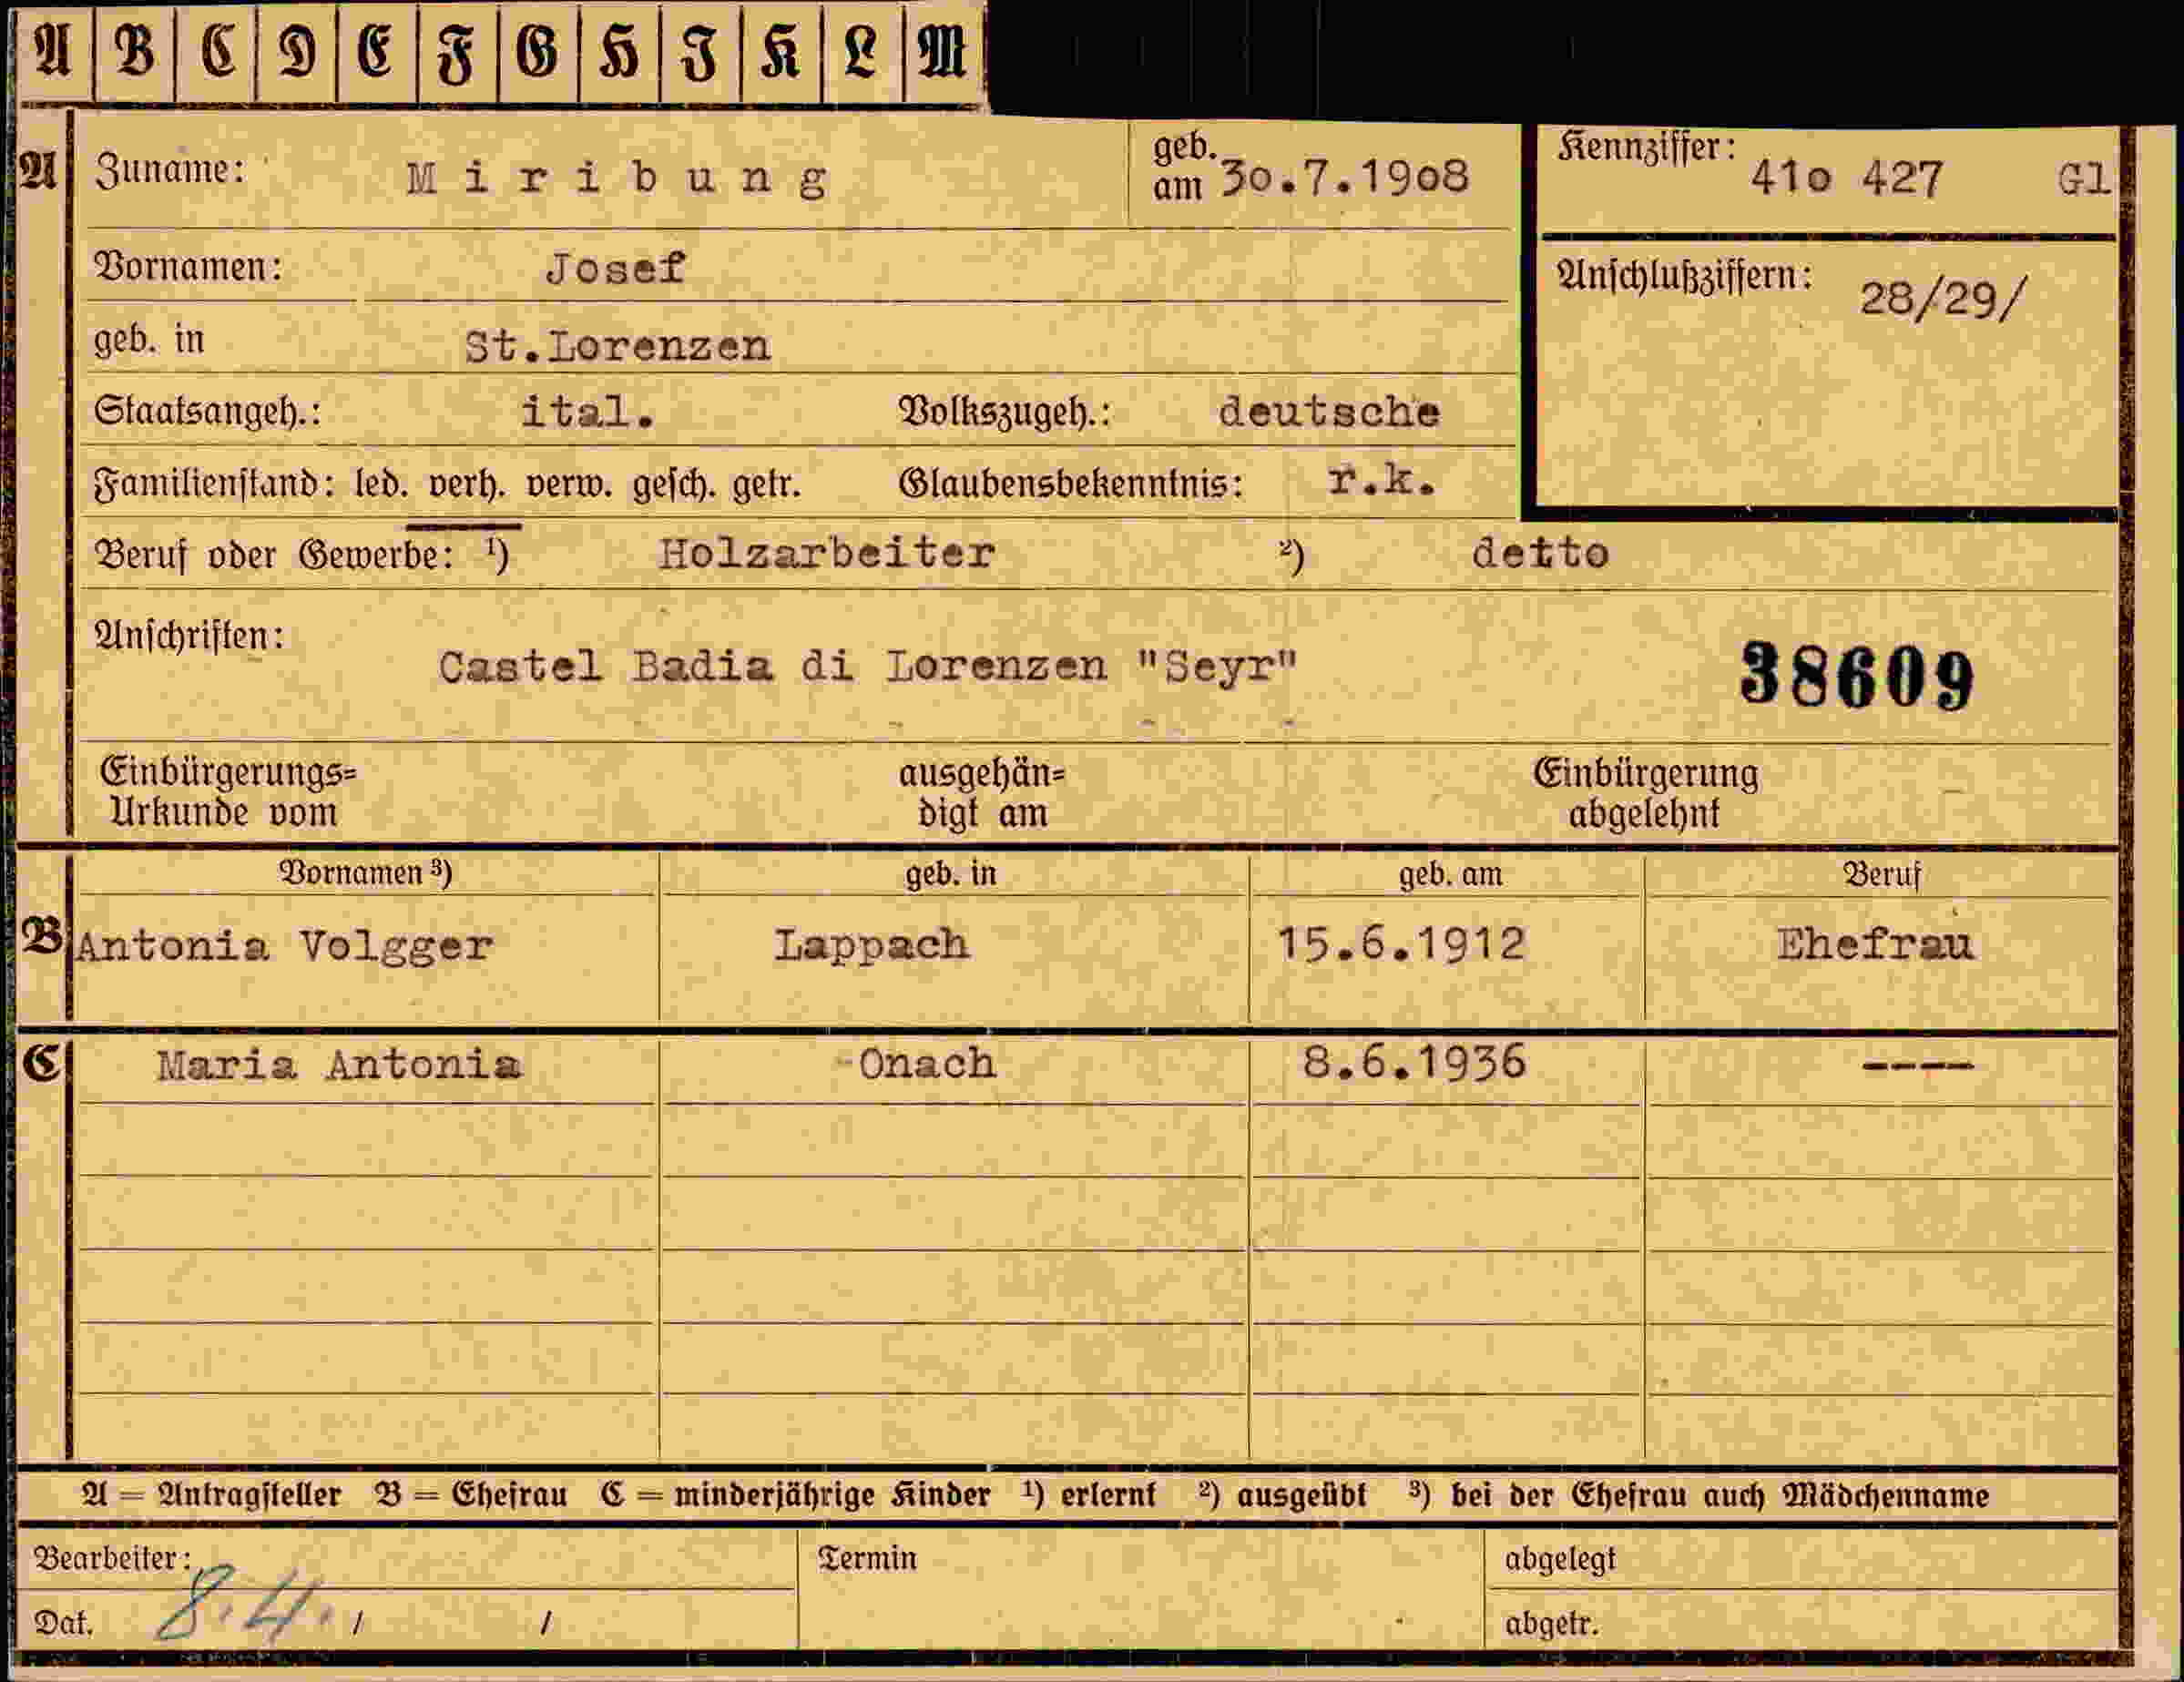 A B C D E F G H J K L M
A Zuname: Miribung geb. am 30.7.1908 Kennziffer: 41o 427 Gl
Vornamen: Josef Anschlußziffern: 28/29/
geb. in St.Lorenzen
Staatsangeh.: ital. Volkszugeh.: deutsche
Familienstand: led. verh. verw. gesch. getr. Glaubensbekenntnis: r.k.
Beruf oder Gewerbe: ¹) Holzarbeiter ²) detto
Anschriften: Castel Badia di Lorenzen "Seyr" 38609
Einbürgerungs= ausgehän= Einbürgerung
Urkunde vom digt am abgelehnt
Vornamen ³) geb. in geb. am Beruf
B Antonia Volgger Lappach 15.6.1912 Ehefrau
C Maria Antonia Onach 8.6.1936 ----
A = Antragsteller B = Ehefrau C = minderjährige Kinder ¹) erlernt ²) ausgeübt ³) bei der Ehefrau auch Mädchenname
Bearbeiter: Termin abgelegt
Dat. 8.4. / / abgetr.